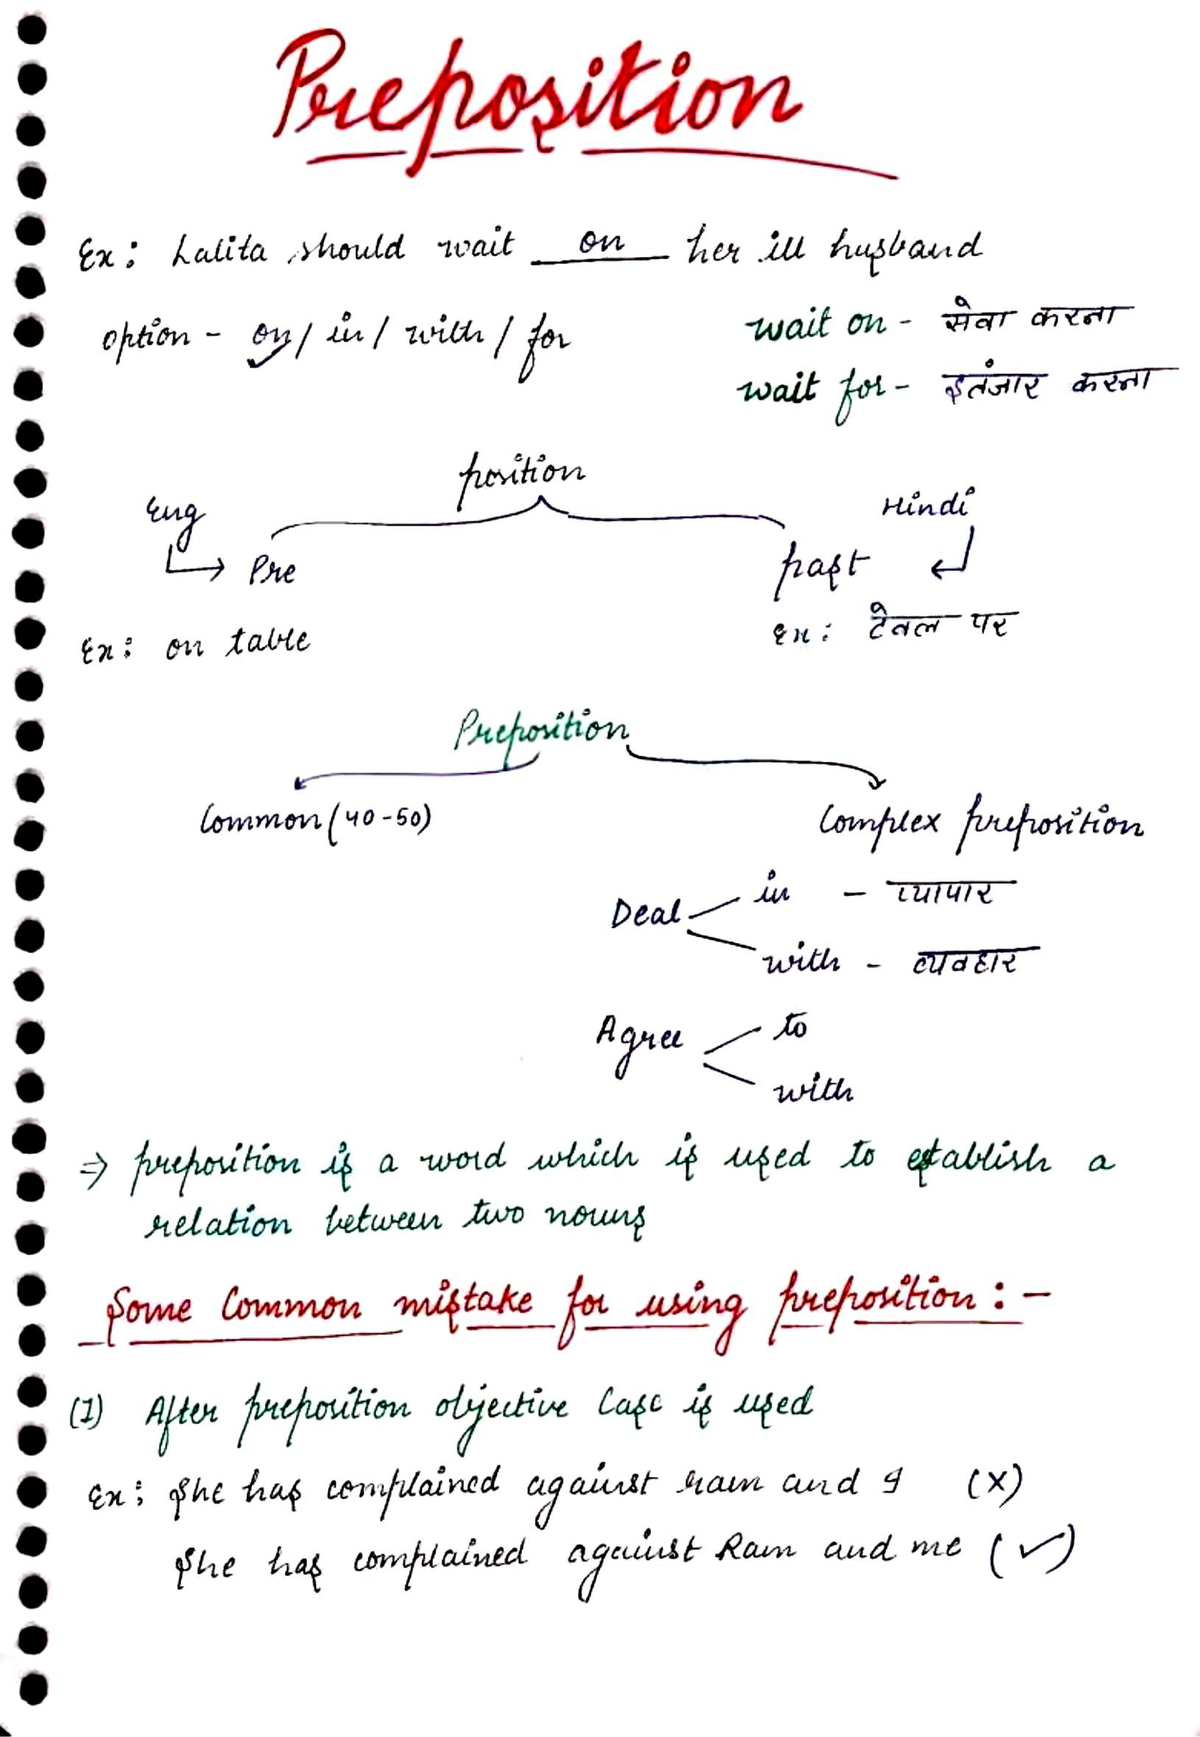 Preposition
Ex: Lalita should wait on her ill husband
option - on / in / with / for
wait on - सेवा करना
wait for - इतंजार करना
position
Eng
Hindi
Pre
past
Ex: on table
Ex: टेवल पर
Preposition
Common (40-50)
Complex preposition
Deal
in - व्यापार
with - व्यवहार
Agree
to
with
⇒ preposition is a word which is used to establish a
relation between two nouns
Some Common mistake for using preposition :-
(1) After preposition objective Case is used
Ex: She has complained against ram and I (X)
She has complained against Ram and me (✓)